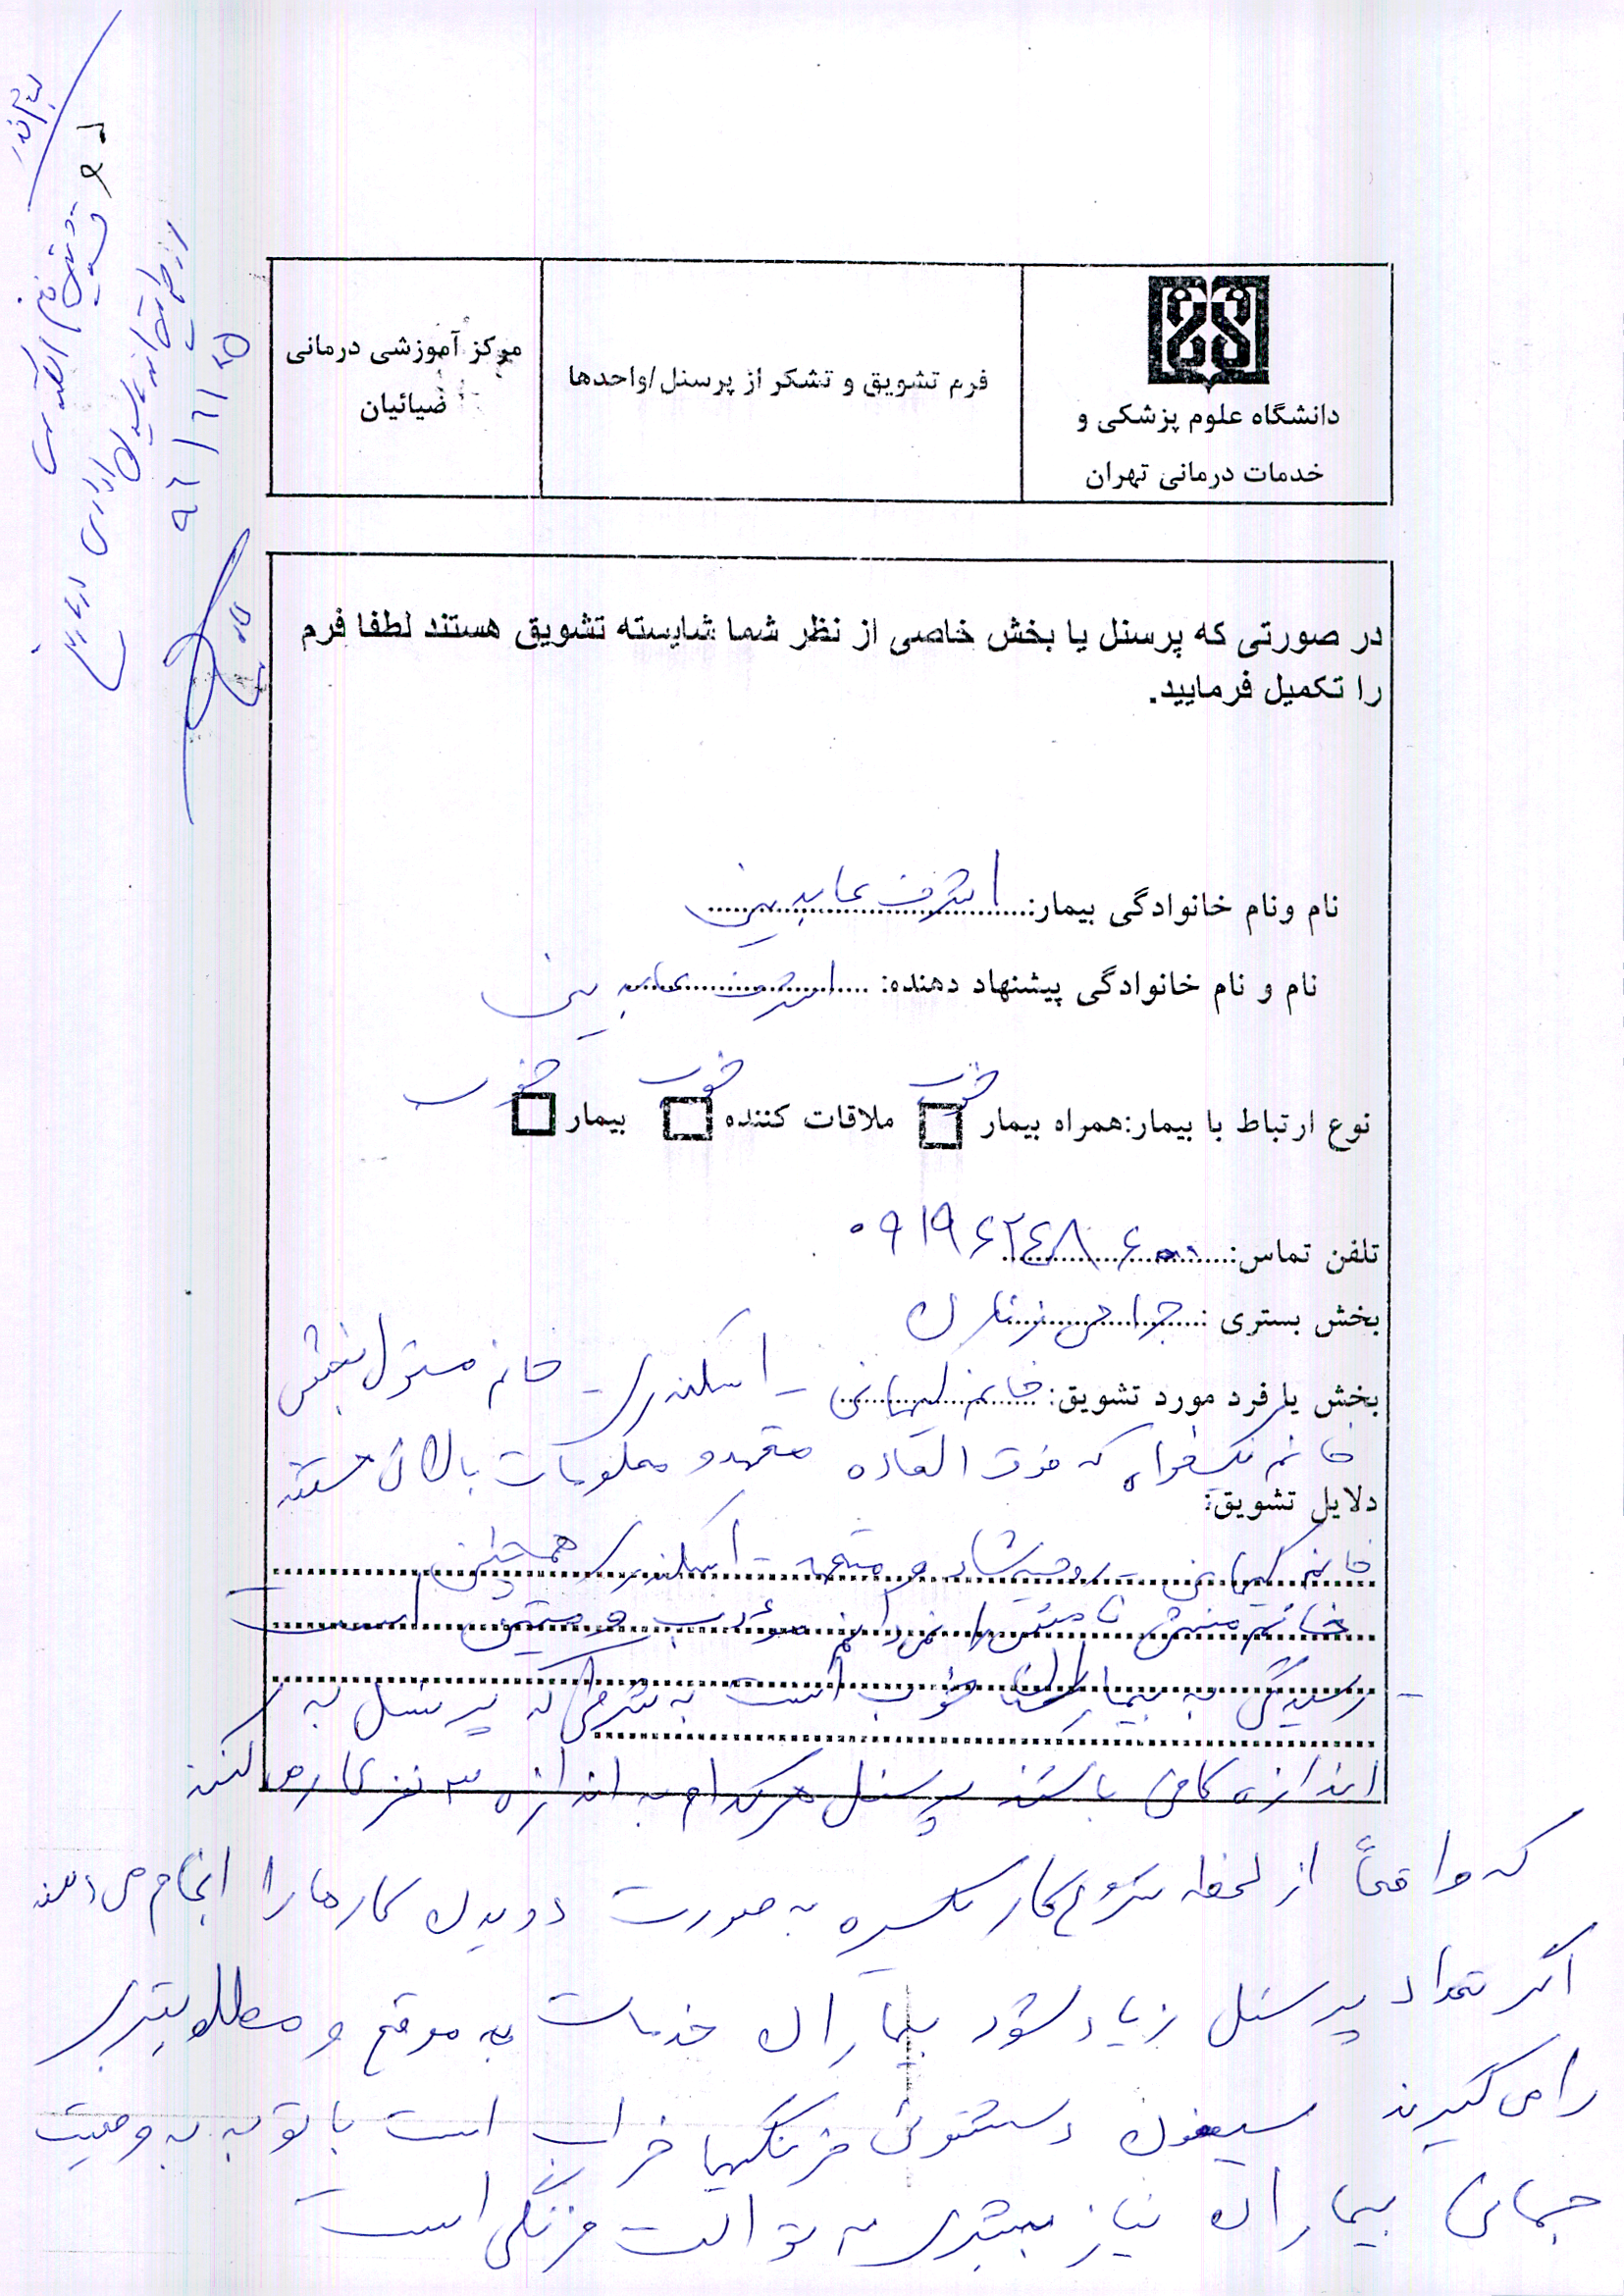 دانشگاه علوم پزشکی و
خدمات درمانی تهران
فرم تشویق و تشکر از پرسنل/واحدها
مرکز آموزشی درمانی
ضیائیان
در صورتی که پرسنل یا بخش خاصی از نظر شما شایسته تشویق هستند لطفا فرم
را تکمیل فرمایید.
نام ونام خانوادگی بیمار: اشرف عابدینی
نام و نام خانوادگی پیشنهاد دهنده: اشرف عابدینی
نوع ارتباط با بیمار:همراه بیمار خوب ملاقات کننده خوب بیمار خوب
تلفن تماس: ۰۹۱۹۶۲۴۸۶۰۰
بخش بستری : جراحی زنان
بخش یا فرد مورد تشویق: خانم - اسکندری - خانم مسئول بخش
خانم نیکخواه که فوق العاده متعهد و معلومات بالائی هستند
دلایل تشویق:
خانم - روحیه شاد و متعهد - اسکندری همچنین
خانم منشی نامشان را نمی‌دانم مؤدب و متین است
- رسیدگی به بیماران خوب است به شرطی که پرسنل به
اندازه کافی باشند پرسنل هر کدام به اندازه ۳ نفر کار می‌کنند
که واقعاً از لحظه شروع کار یکسره به صورت دویدن کارها را انجام می‌دهند
اگر تعداد پرسنل زیاد شود بیماران خدمات به موقع و مطلوبتری
را می‌گیرند سیفون دستشوئی فرنگیها خراب است با توجه به وضعیت
جسمانی بیماران نیاز بیشتری به توالت فرنگی است